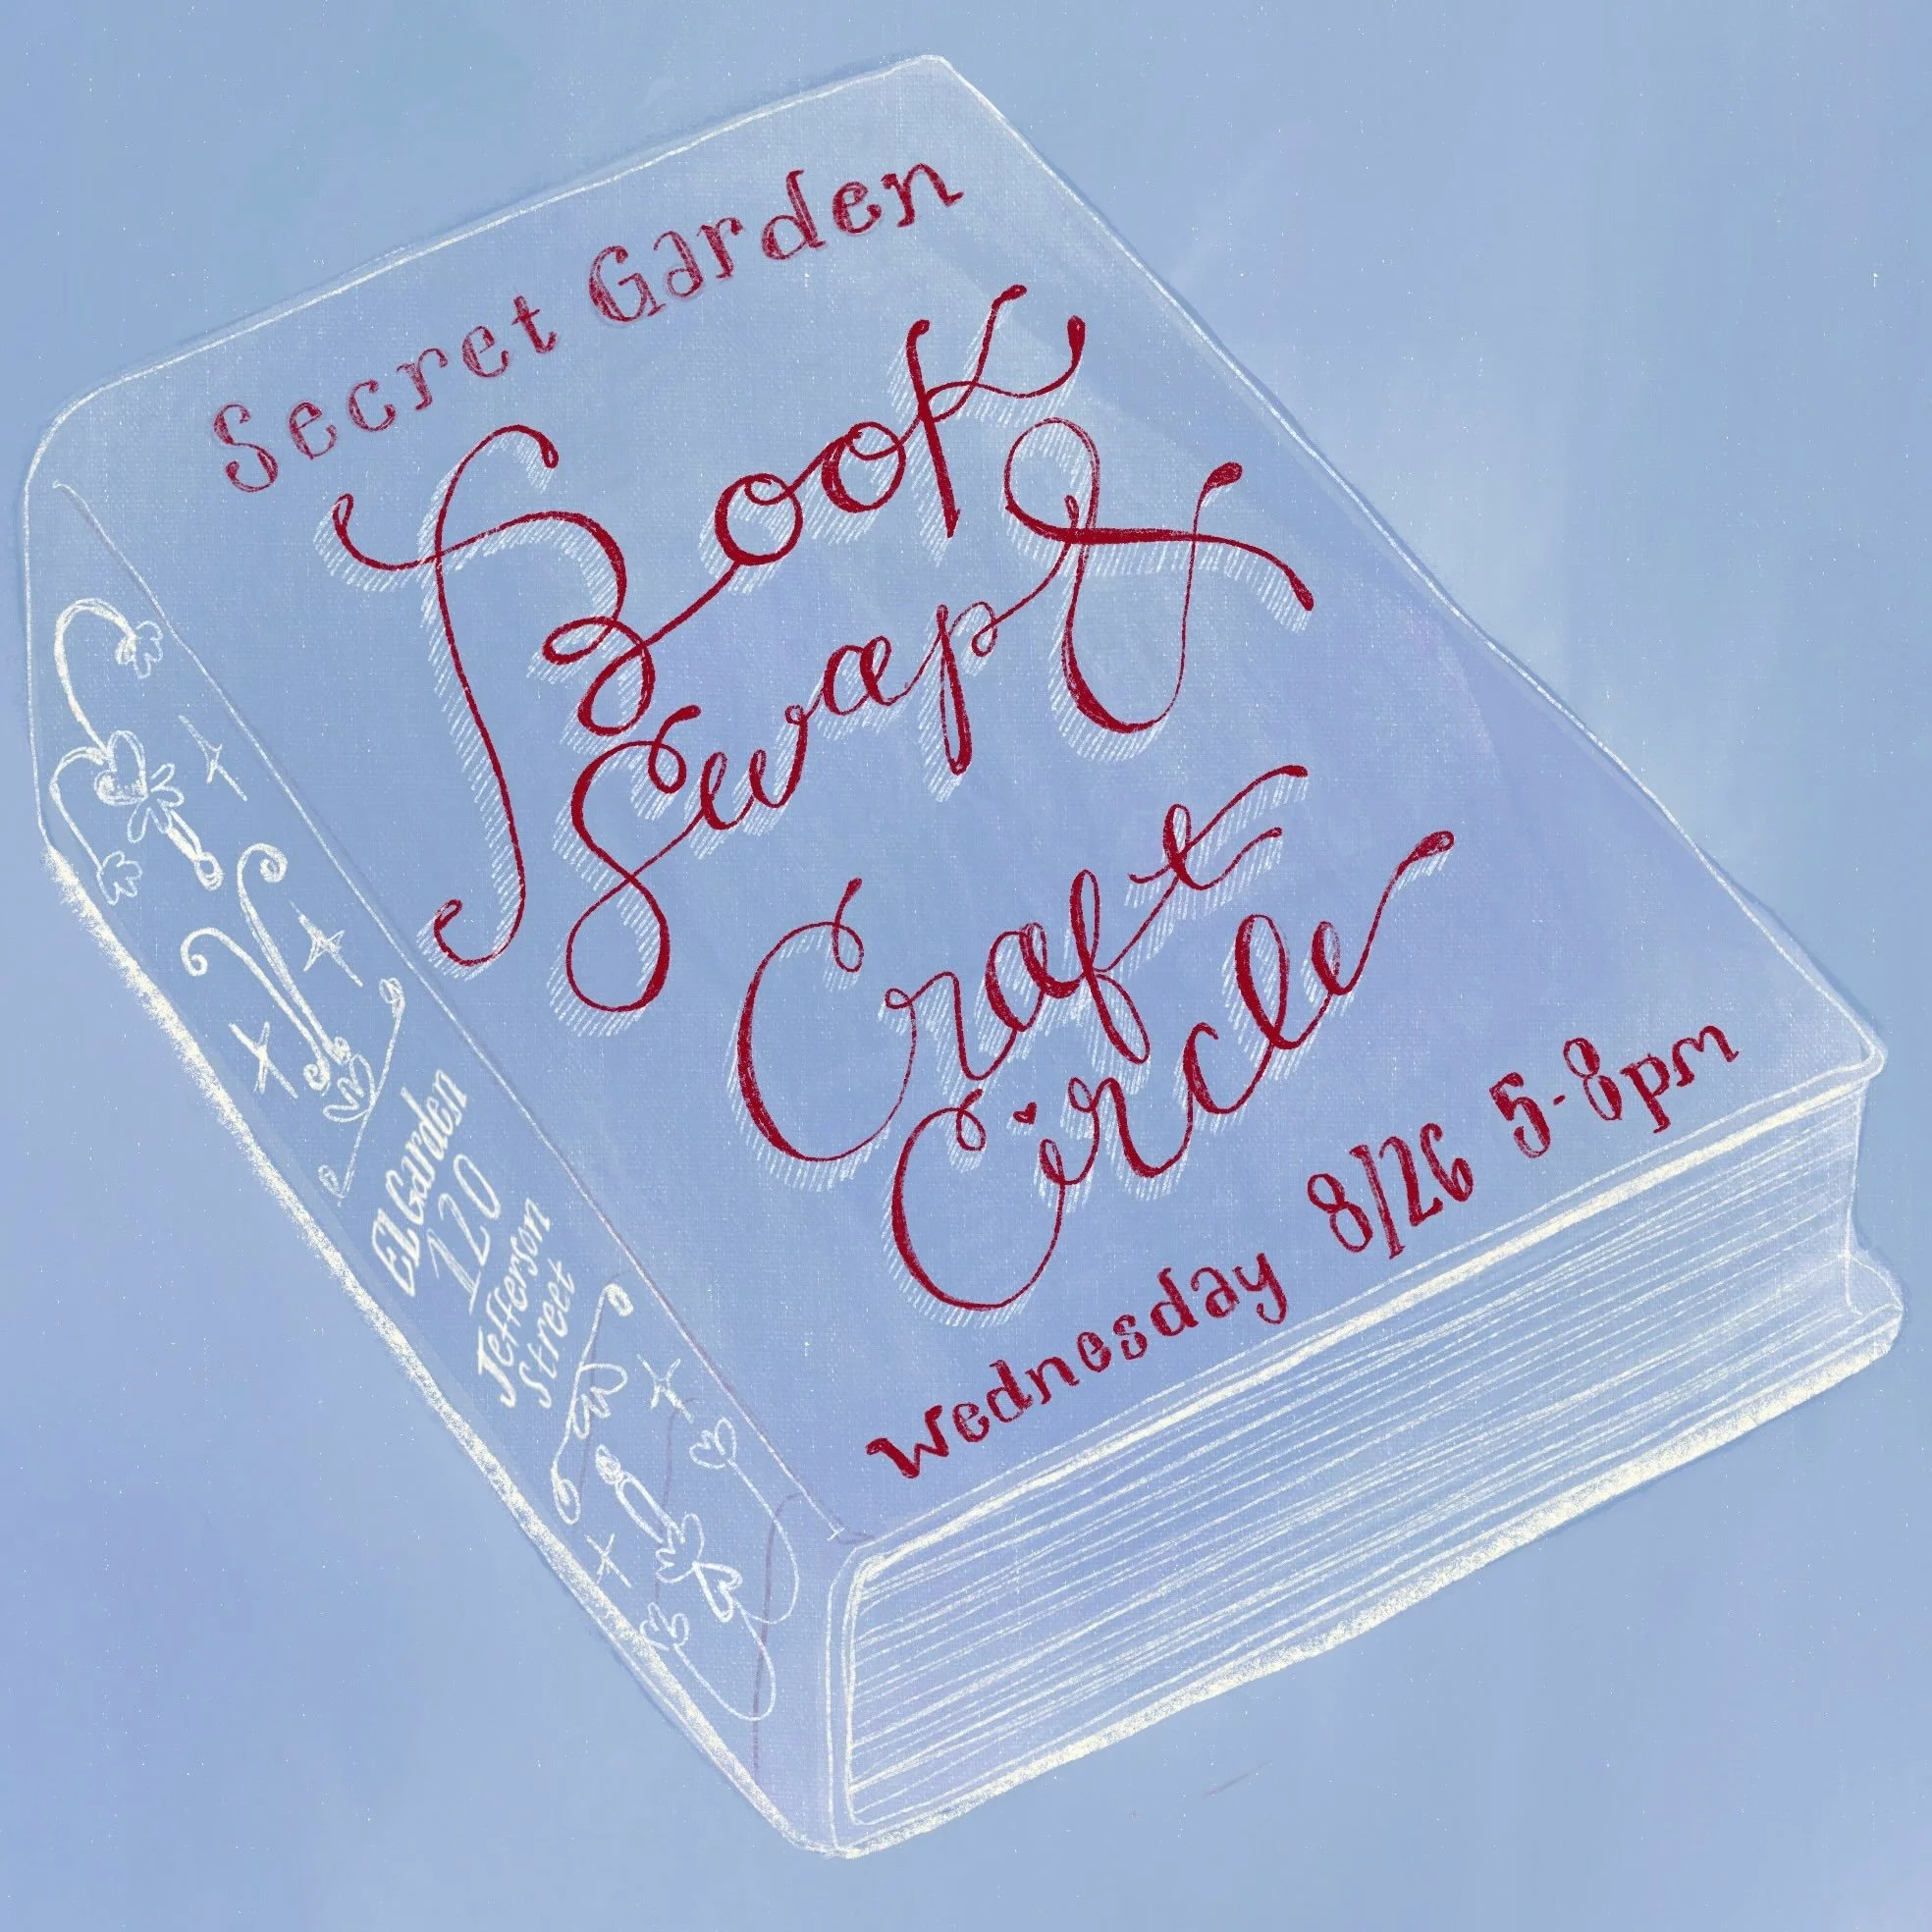 Secret Garden
Book
Swap &
Craft
Circle
Wednesday 8/26 5-8pm
El Garden
120
Jefferson
Street